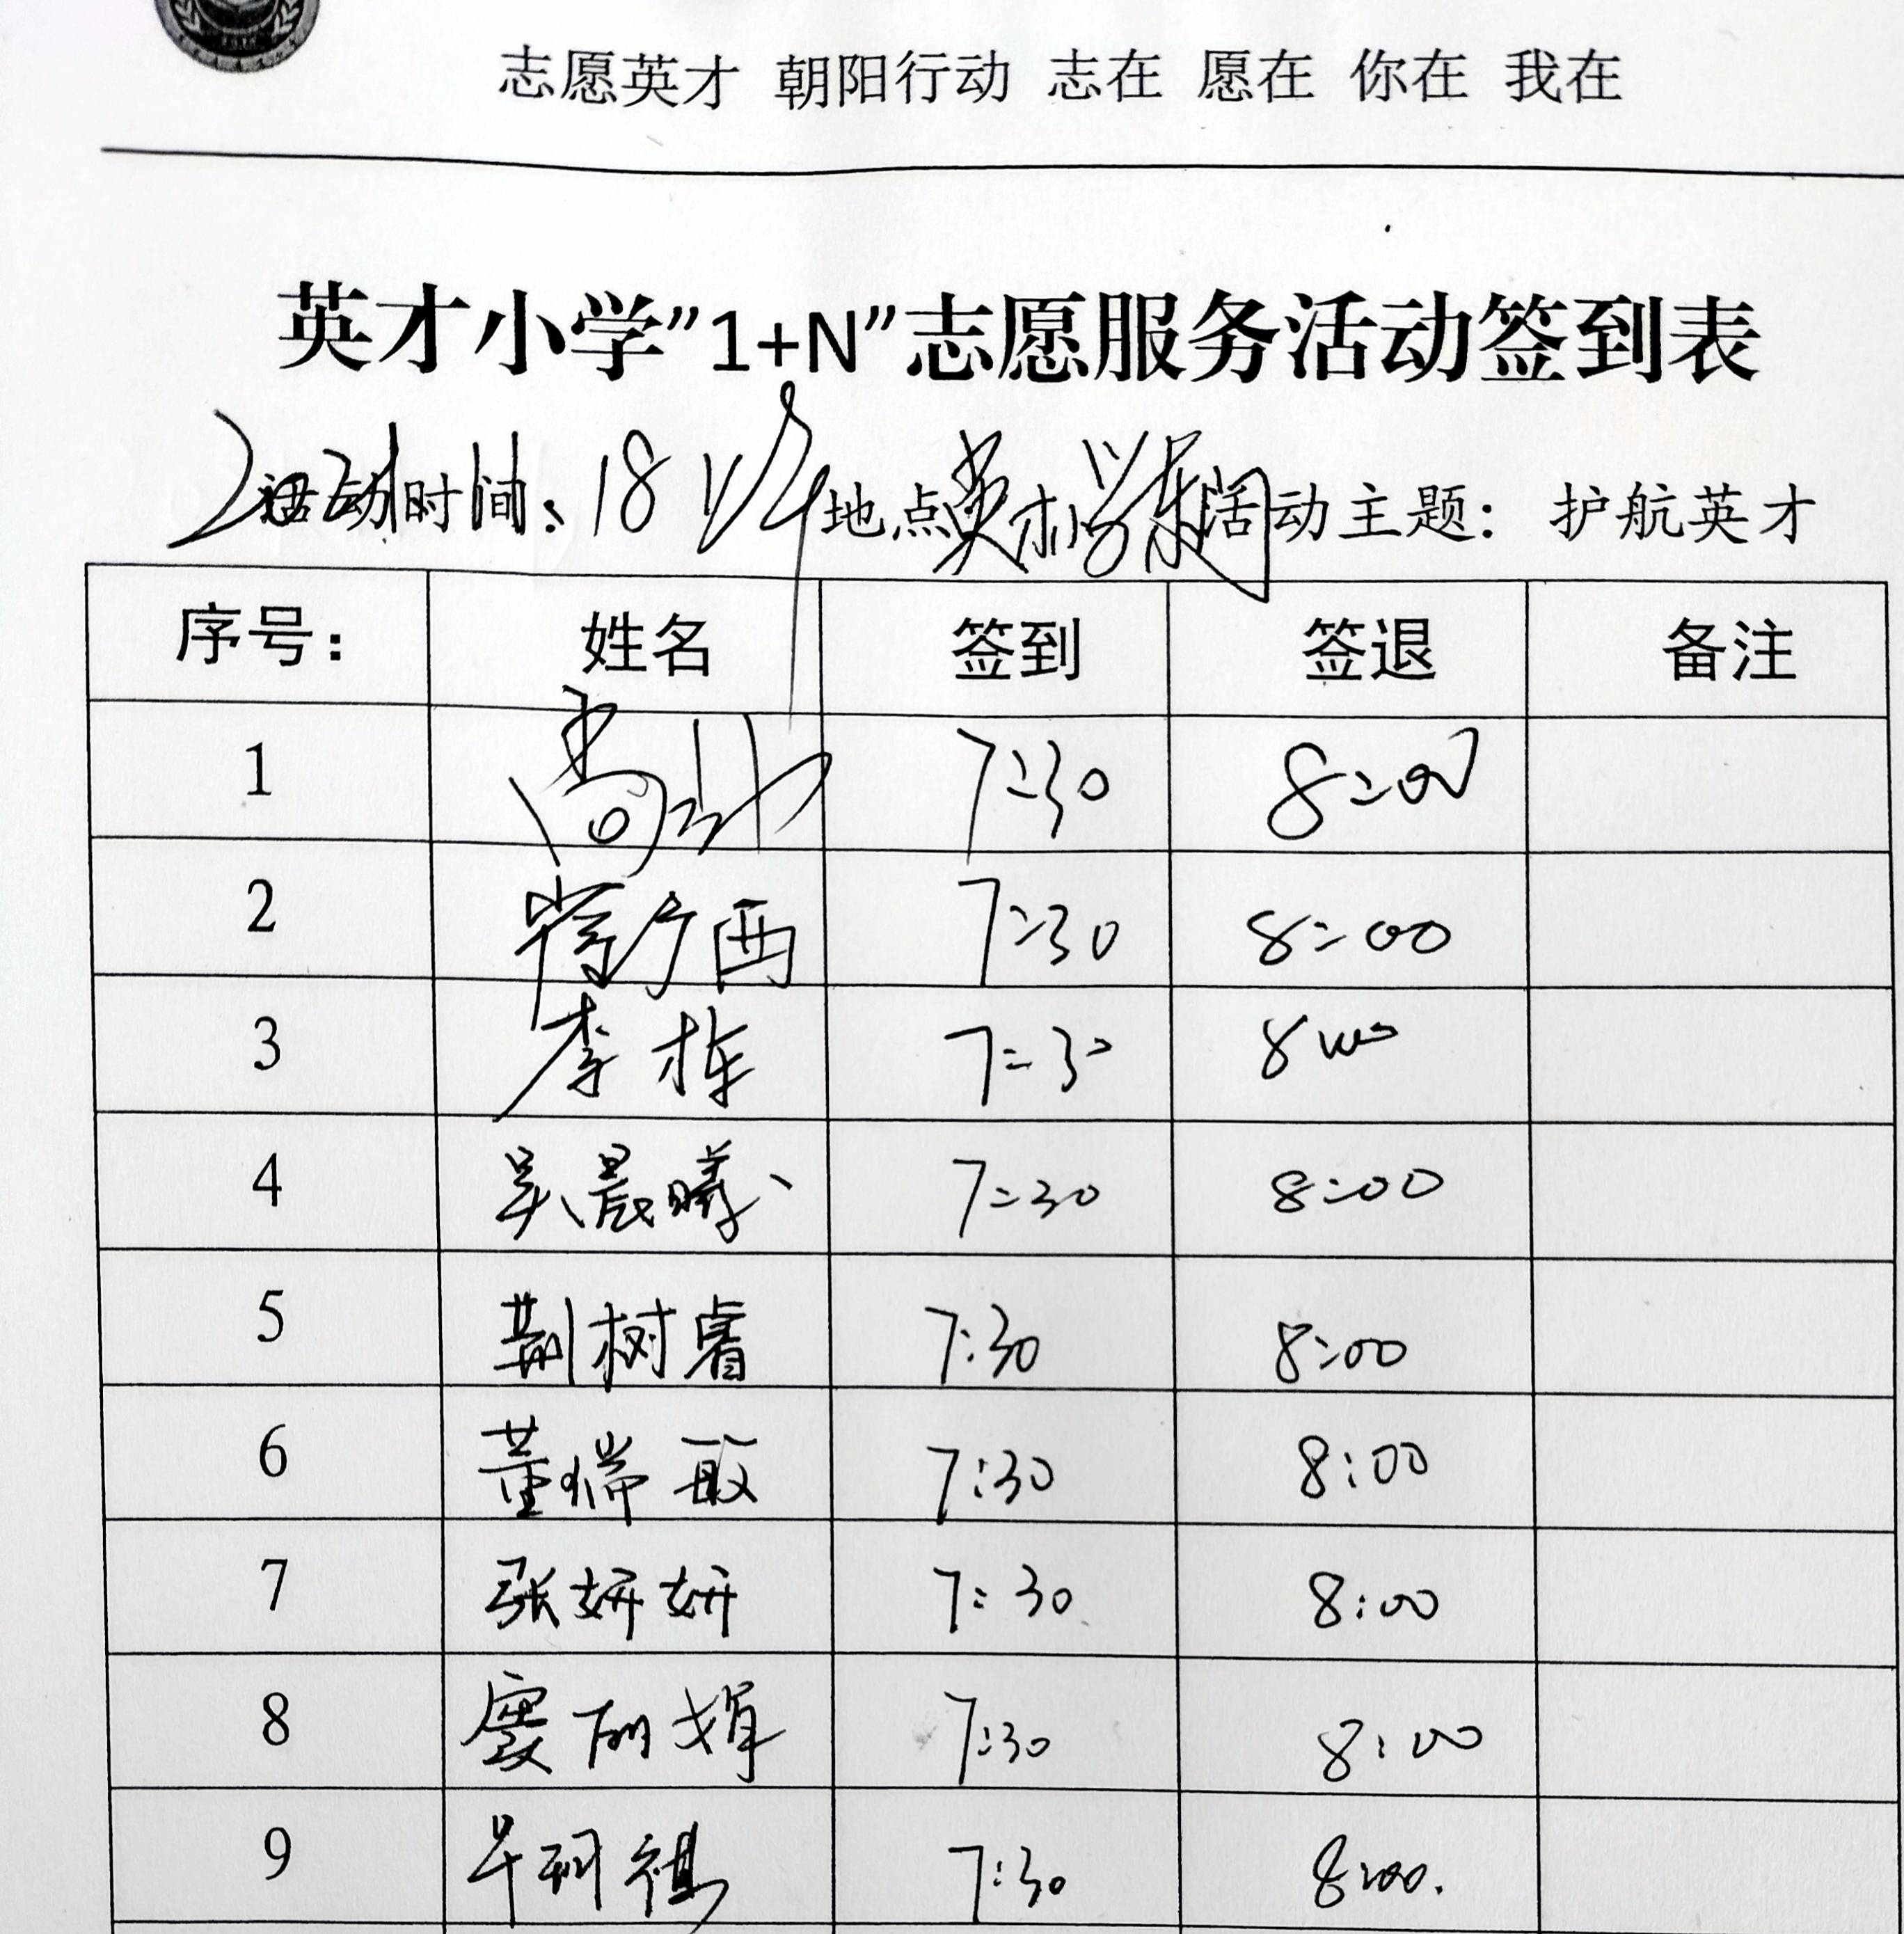 志愿英才 朝阳行动 志在 愿在 你在 我在
英才小学”1+N”志愿服务活动签到表
活动时间: 18 地点 英才小学东 活动主题: 护航英才
序号: 姓名 签到 签退 备注
1 高 7:30 8:00
2 西 7:30 8:00
3 李栋 7:30 8:00
4 吴晨曦 7:30 8:00
5 荆树睿 7:30 8:00
6 董 7:30 8:00
7 张妍妍 7:30 8:00
8 7:30 8:00
9 7:30 8:00.